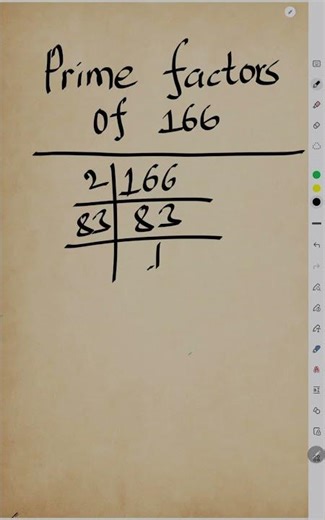 Prime factors
of 166
2 | 166
83 | 83
1